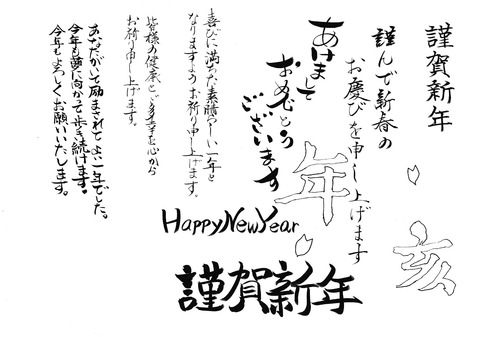 謹賀新年
謹んで新春の
お慶びを申し上げます
亥
年
あけまして
おめでとう
ございます
HappyNewYear
謹賀新年
喜びに満ちた素晴らしい一年と
なりますようお祈り申し上げます。
皆様の健康とご多幸を心から
お祈り申し上げます。
あなたがいて励まされてよい一年でした。
今年も夢に向かって歩き続けます。
今年もよろしくお願いいたします。